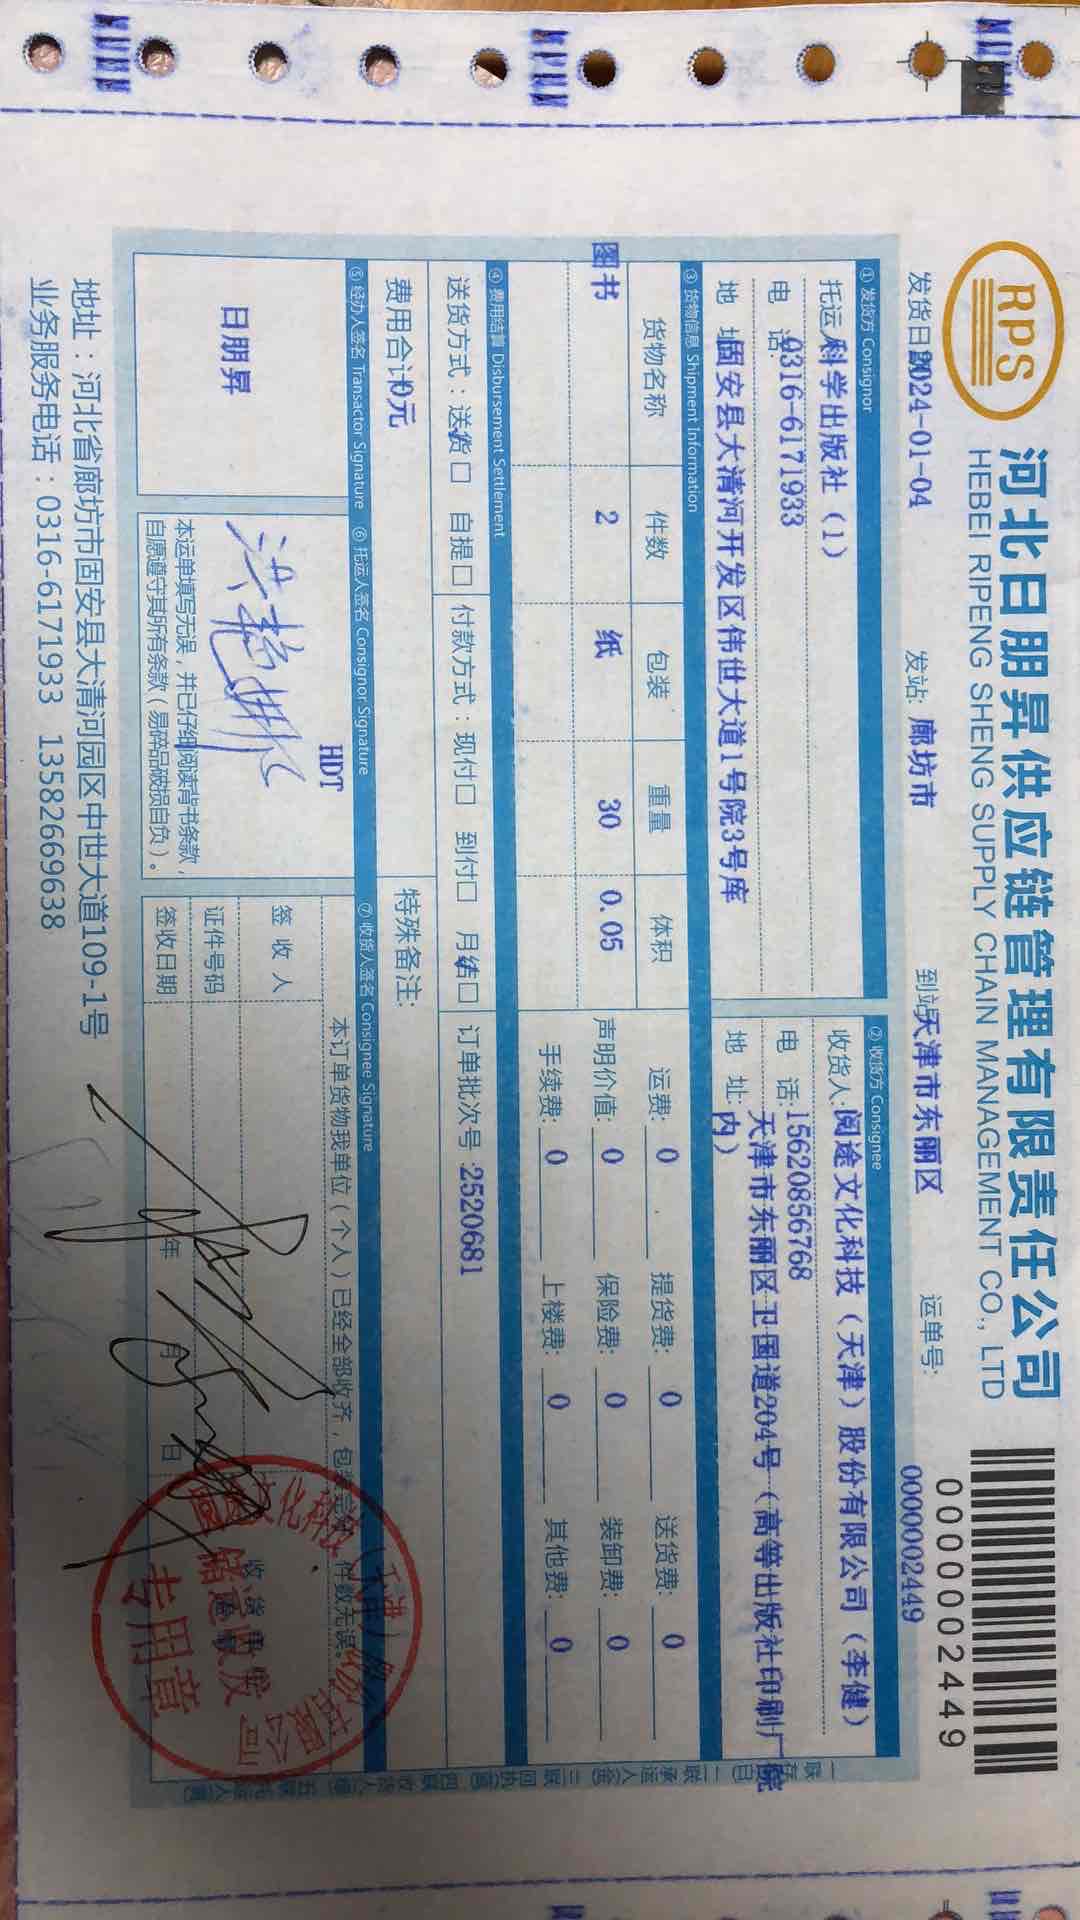 RPS
河北日朋昇供应链管理有限责任公司
HEBEI RIPENG SHENG SUPPLY CHAIN MANAGEMENT CO., LTD
0000002449
发货日2024-01-04 发站: 廊坊市 到站天津市东丽区 运单号: 0000002449
① 发货方 Consignor
托运科学出版社（1）
电话:0316-6171933
地 址固安县大清河开发区伟世大道1号院3号库
② 收货方 Consignee
收货人:阅途文化科技（天津）股份有限公司（李健）
电 话:15620856768
地 址:天津市东丽区卫国道204号（高等出版社印刷厂院内）
③ 货物信息 Shipment Information
货物名称 件数 包装 重量 体积
图书 2 纸 30 0.05
运费: 0 提货费: 0 送货费: 0
声明价值: 0 保险费: 0 装卸费: 0
手续费: 0 上楼费: 0 其他费: 0
④ 费用结算 Disbursement Settlement
送货方式：送货□ 自提□ 付款方式：现付□ 到付□ 月结□ 订单批次号:2520681
费用合计0元 特殊备注:
⑤ 经办人签名 Transactor Signature
日朋昇
⑥ 托运人签名 Consignor Signature
HDT
本运单填写无误，并已仔细阅读背书条款，
自愿遵守其所有条款（易碎品破损自负）。
⑦ 收货人签名 Consignee Signature
本订单货物我单位（个人）已经全部收齐，包装完好，件数无误。
签 收 人
证件号码
签收日期 年 月 日
专用章
地址：河北省廊坊市固安县大清河园区中世大道109-1号
业务服务电话：0316-6171933 13582669638